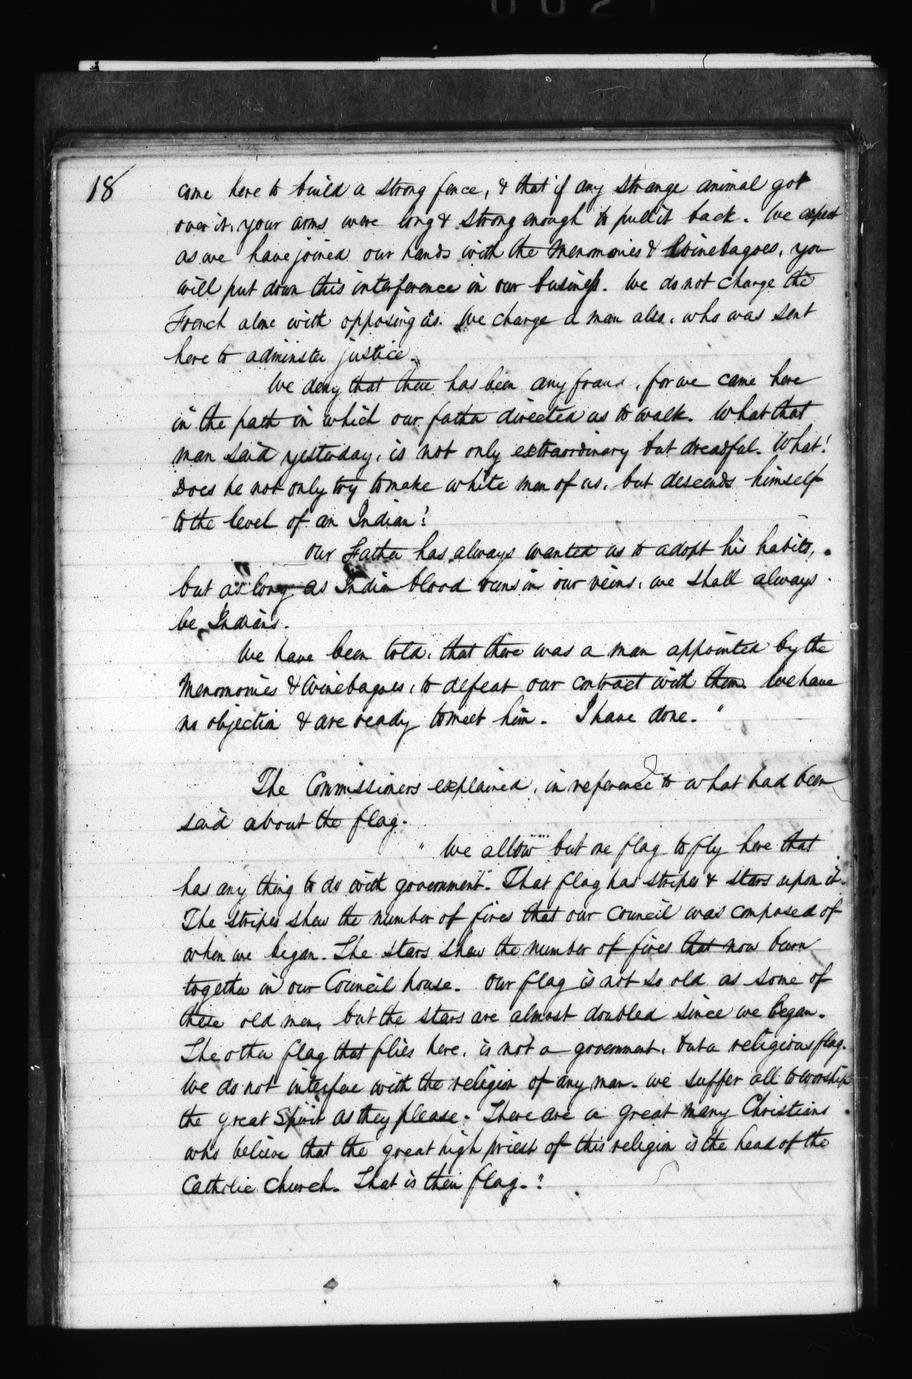 18
come here to build a strong fence, & that if any strange animal got
over it, your arms were long & strong enough to pull it back. We expect
as we have joined our hands with the Menomonies & Winebagoes, you
will put down this interference in our business. We do not charge the
French alone with opposing us. We charge a man also, who was sent
here to adminster justice.
We deny that there has been any fraud, for we came here
in the path in which our father directed us to walk. What that
man said yesterday, is not only extraordinary but dreadful. What!
Does he not only try to make white men of us, but descends himself
to the level of an Indian!
Our Father has always wanted us to adopt his habits,
but as long as Indian blood runs in our veins, we shall always
be Indians.
We have been told, that there was a man appointed by the
Menomonies & Winebagoes, to defeat our contract with them. We have
no objection & are ready to meet him. I have done."
The Commissioners explained, in reference to what had been
said about the flag.
"We allow but one flag to fly here that
has any thing to do with government. That flag has stripes & stars upon it.
The stripes shew the number of fires that our council was composed of
when we began. The stars shew the number of fires that now burn
together in our Council house. Our flag is not so old as some of
these old men, but the stars are almost doubled since we began.
The other flag that flies here, is not a government, but a religious flag.
We do not interfere with the religion of any man. We suffer all to worship
the great Spirit as they please. There are a great many Christians
who believe that the great high priest of this religion is the head of the
Catholic Church. That is their flag."